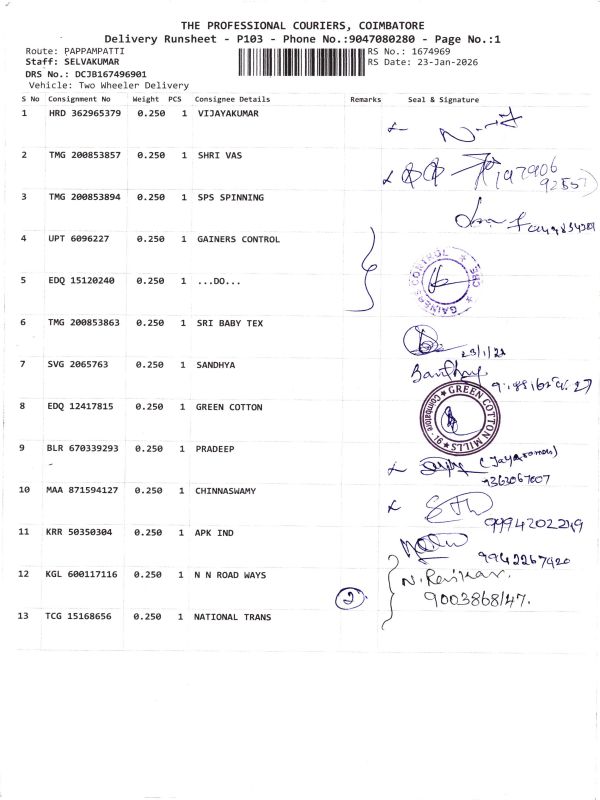 THE PROFESSIONAL COURIERS, COIMBATORE
Delivery Runsheet - P103 - Phone No.:9047080280 - Page No.:1
Route: PAPPAMPATTI
RS No.: 1674969
Staff: SELVAKUMAR
RS Date: 23-Jan-2026
DRS No.: DCJB167496901
Vehicle: Two Wheeler Delivery
S No Consignment No Weight PCS Consignee Details Remarks Seal & Signature
1 HRD 362965379 0.250 1 VIJAYAKUMAR
2 TMG 200853857 0.250 1 SHRI VAS
3 TMG 200853894 0.250 1 SPS SPINNING
4 UPT 6096227 0.250 1 GAINERS CONTROL
5 EDQ 15120240 0.250 1 ...DO...
6 TMG 200853863 0.250 1 SRI BABY TEX
7 SVG 2065763 0.250 1 SANDHYA
8 EDQ 12417815 0.250 1 GREEN COTTON
GREEN COTTON MILLS
9 BLR 670339293 0.250 1 PRADEEP
10 MAA 871594127 0.250 1 CHINNASWAMY
11 KRR 50350304 0.250 1 APK IND
9942267420
12 KGL 600117116 0.250 1 N N ROAD WAYS
2
9003868147.
13 TCG 15168656 0.250 1 NATIONAL TRANS